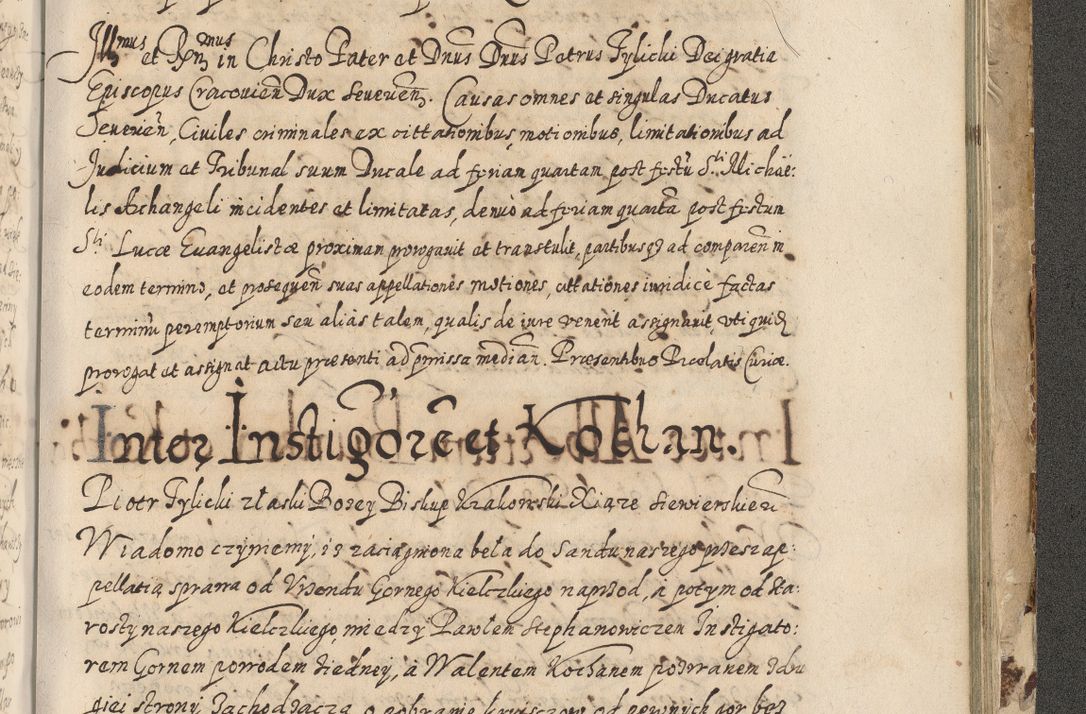 Illmus et Rnd̄mus in Christo Pater et Dnūs Dnūs Petrus Tylicki Dei gratia
Episcopus Cracovien̄ Dux Severien̄. Causas omnes et singulas Ducatus
Severien̄, Civiles criminales ex cittationibus, motionibus, limitationibus ad
Judicium et Tribunal suum Ducale ad feriam quartam post festū S.ti Michäe:
lis Archangeli incidentes et limitatas, denuo ad feriam quartā post festum
S.ti Lucæ Evangelistæ proximam prorogavit et transtulit, partibusq; ad comparen̄ in
eodem termino, et prosequen̄ suas appellationes motiones, cittationes iuridicè factas
terminū peremptorium seu aliàs talem, qualis de iure venerit assignavit, uti quidē
prorogat et assignat actu præsenti ad p̄missa median̄. Præsentibus Prælatis Curiæ.
Inter Instigōrē et Kochan.
Piotr Tylicki z łaski Bozey Biskup Krakowski Xiąze Siewierskie
Wiadomo czyniemy, iz zaciągniona beła do Sandu naszego przez ap:
pellatią sprawa od Vrzendu Gornego Kielczkiego naprzod, a potym od sta:
rosty naszego Kielczkiego miedzy Pawlem Stephanowiczem Instigato:
rem Gornem powodem z iedney, à Walentem Kochanem pozwanem z dru
giei strony zachodzącą, o pobranie kruszczow od pewnych gor bez